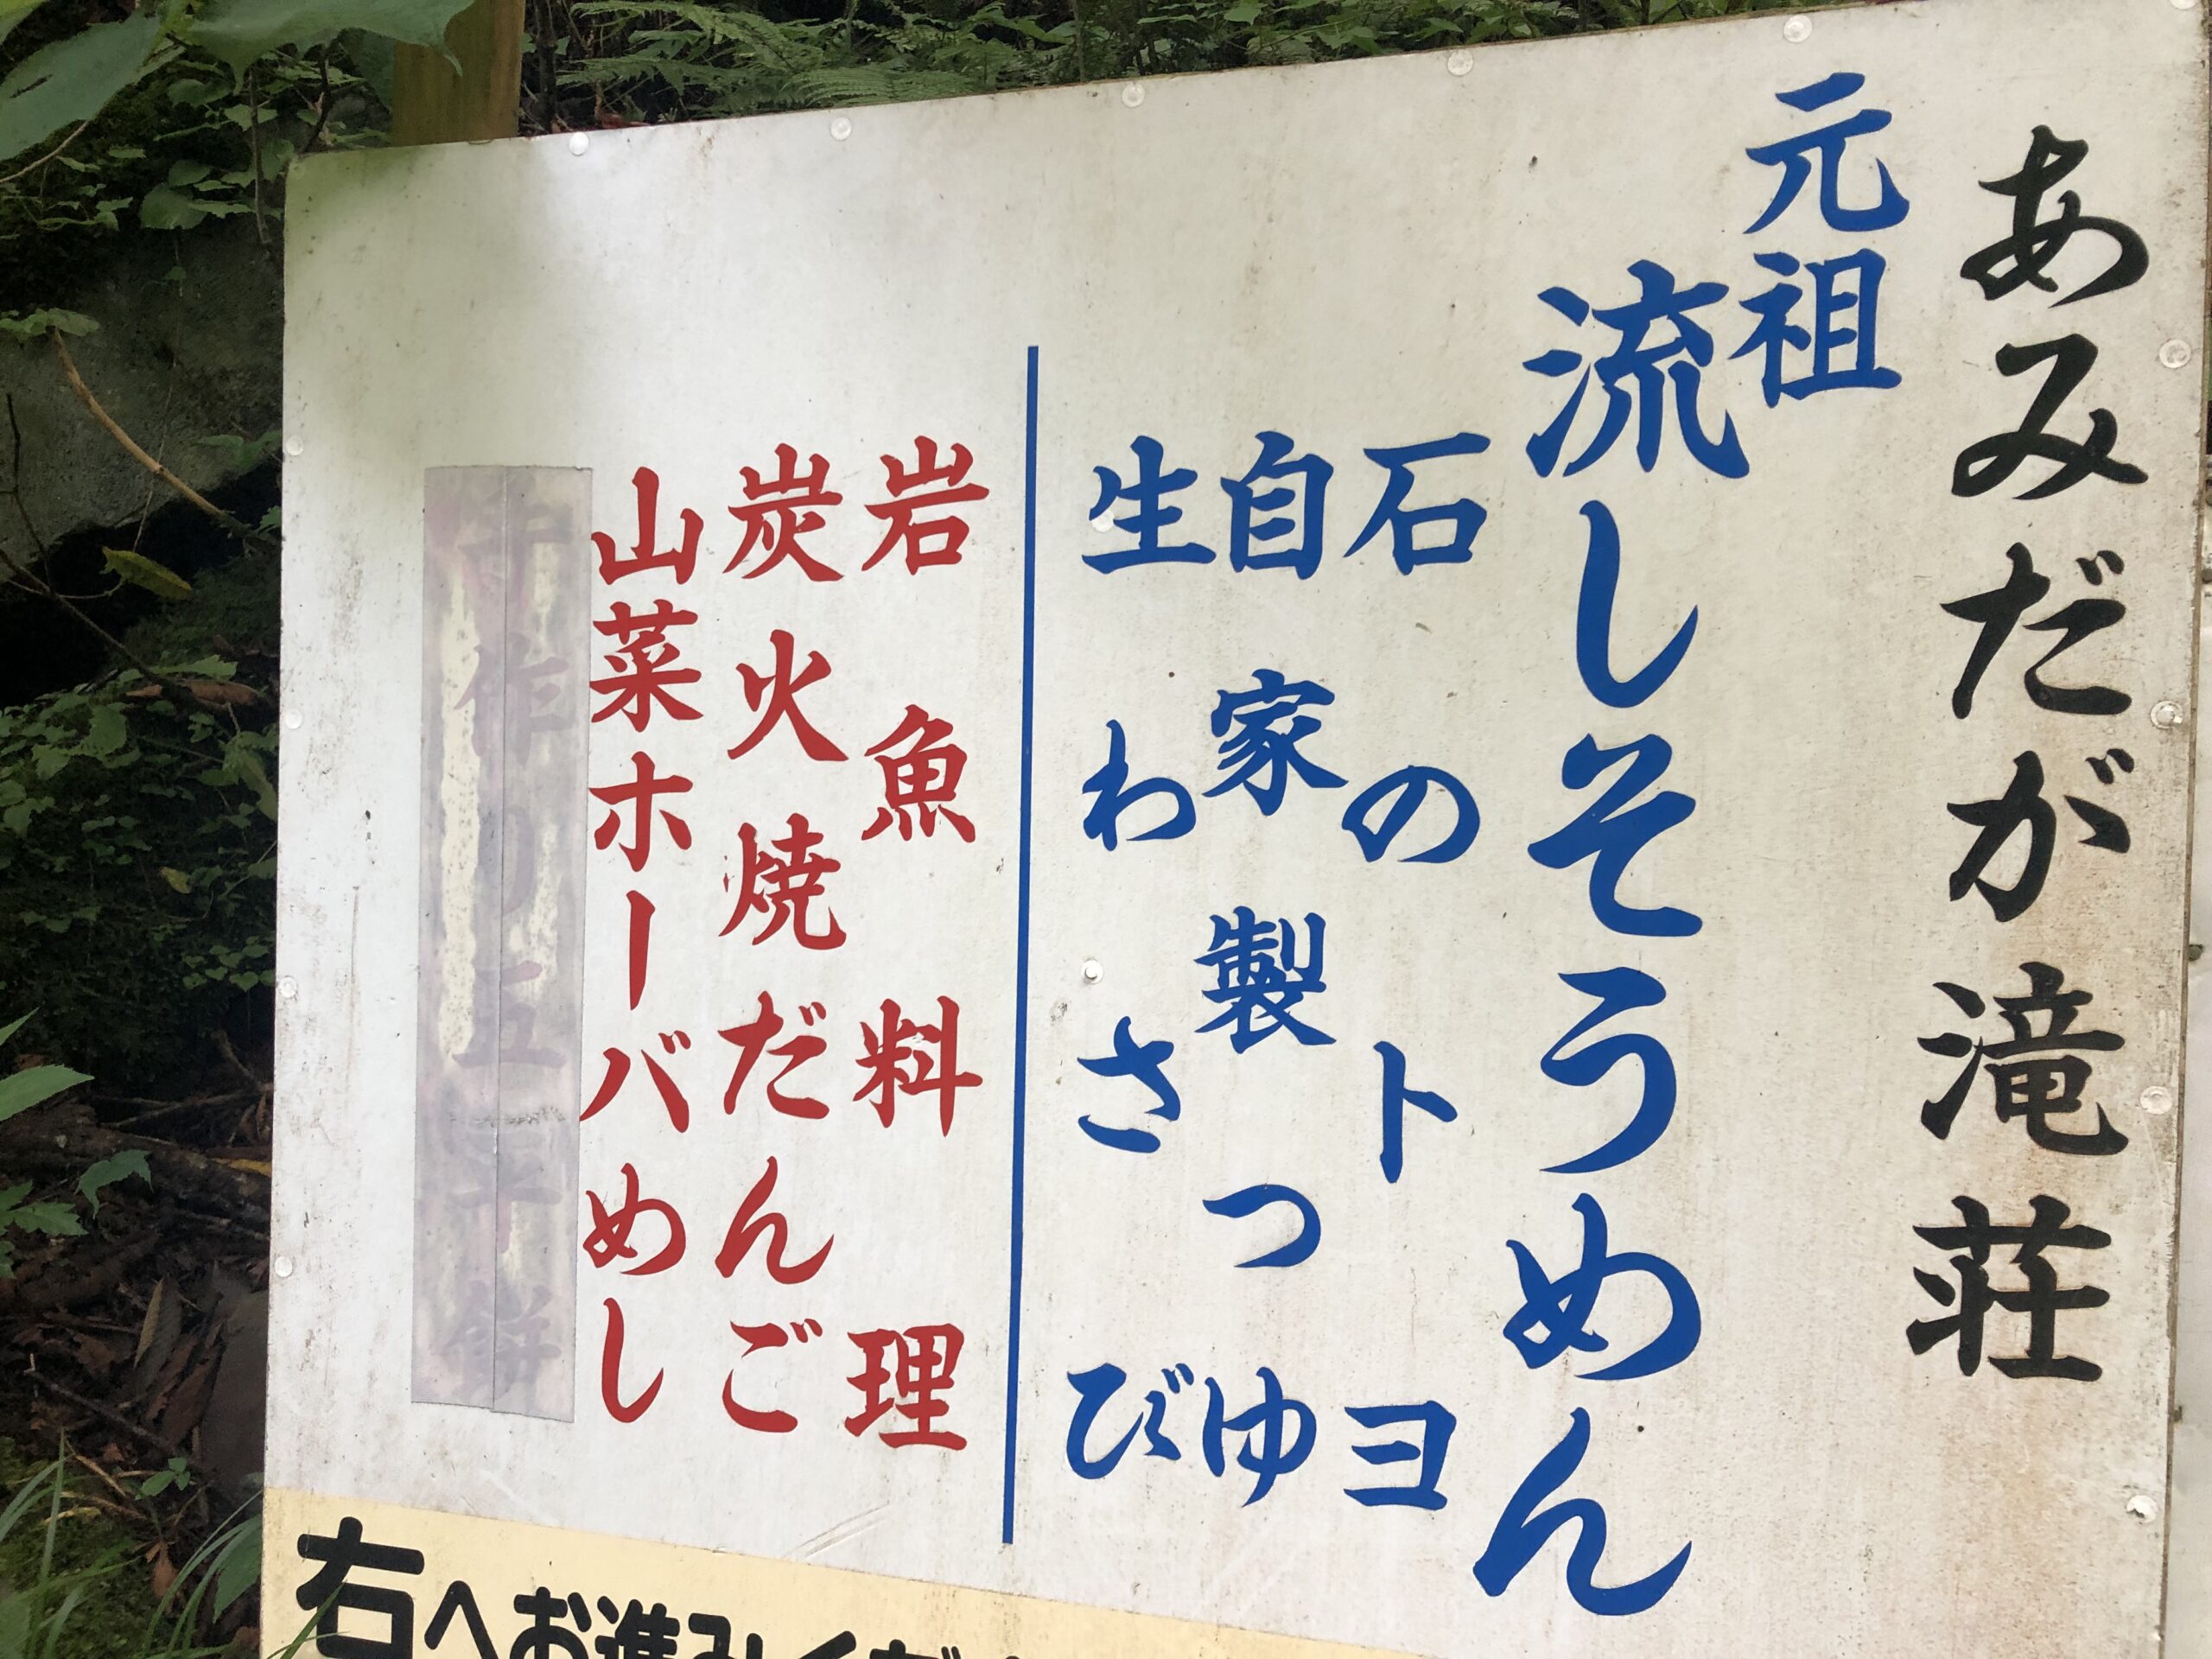 あみだが滝荘
元祖
流しそうめん
石のトヨ
自家製つゆ
生わさび
岩魚料理
炭火焼だんご
山菜ホーバめし
右へお進みくだ